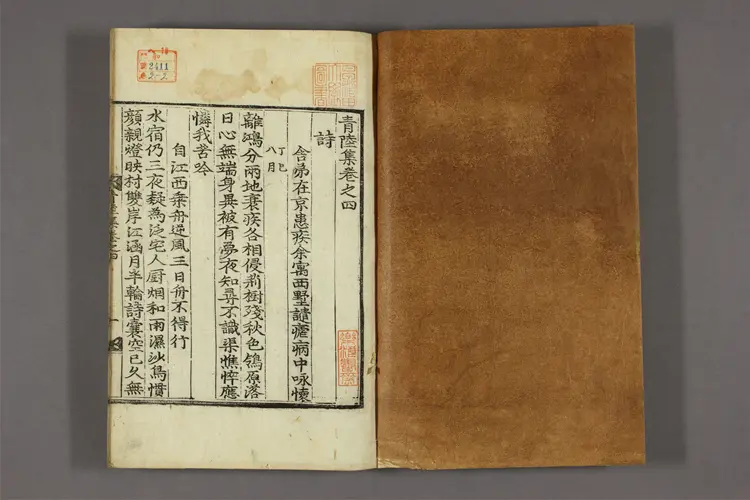 青陸集卷之四
詩
舍弟在京患疾余寓西墅譴瘧病中咏懷
丁巳
八月
離鴻分兩地衰疾各相侵荊樹殘秋色鴒原落
日心無端身異被有夢夜知尋不識渠憔悴應
憐我苦吟
自江西乘舟逆風三日舟不得行
水宿仍三夜疑為泛宅人厨烟和雨濕沙鳥惜
顔親燈映村雙岸江涵月半輪詩囊空已久無
2411
2-2